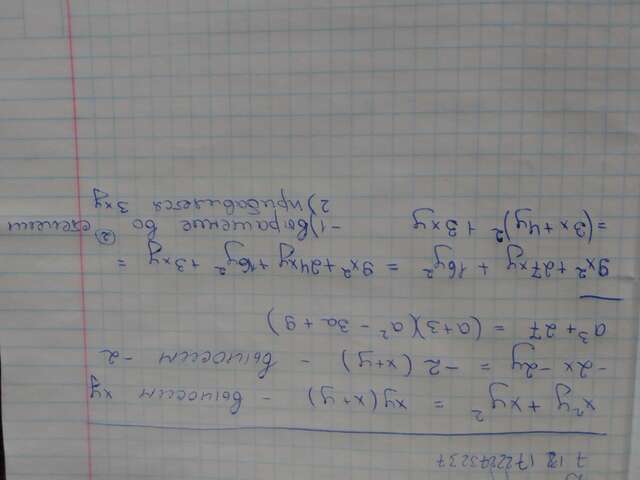 x²y + xy² = xy(x+y) - выносим xy
-2x-2y = -2(x+y) - выносим -2
a³+27 = (a+3)(a²-3a+9)
9x²+27xy+16y² = 9x²+24xy+16y²+3xy =
=(3x+4y)²+3xy -1) выражение во ② степени
2) прибавляется 3xy